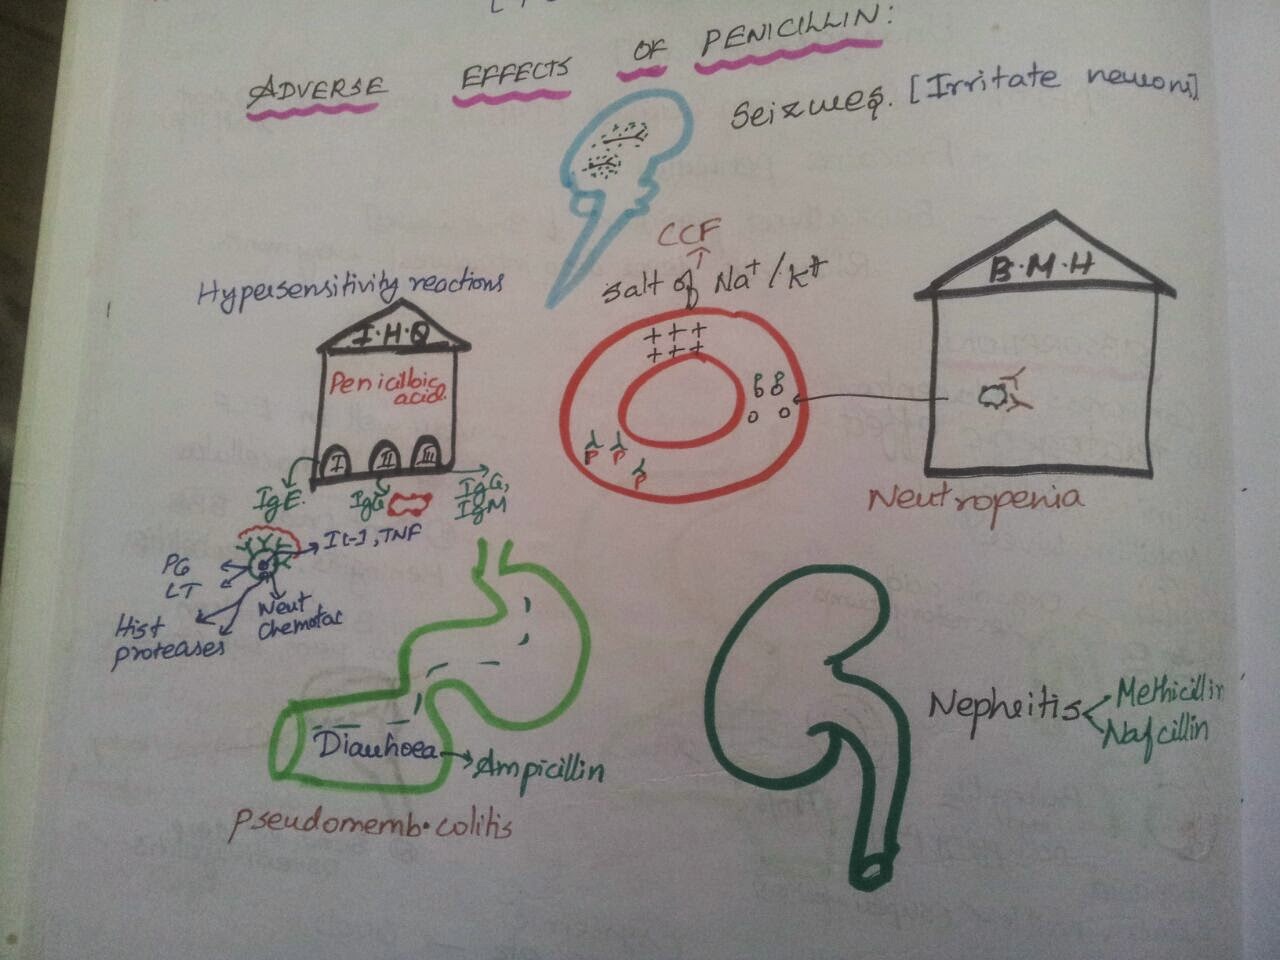 ADVERSE EFFECTS OF PENICILLIN:
Seizures. [Irritate neurons]
CCF
Salt of Na+ / K+
+ + +
+ + +
P P
P
B.M.H
Neutropenia
Hypersensitivity reactions
I.H.Q
Penicilloic
acid.
I II III
IgE. IgG IgG,
IgM
IL-1, TNF
PG
LT
Hist
proteases
Neut
chemotac
Diarrhoea → Ampicillin
Pseudomemb. colitis
Nephritis
Methicillin
Nafcillin